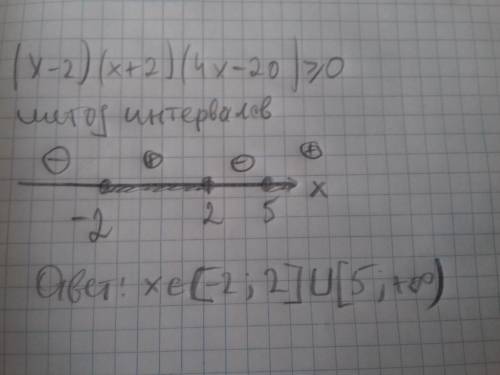 (x-2)(x+2)(4x-20)≥0
метод интервалов
⊖ ⊕ ⊖ ⊕
-2 2 5 x
Ответ: x∈[-2; 2]U[5; +∞)